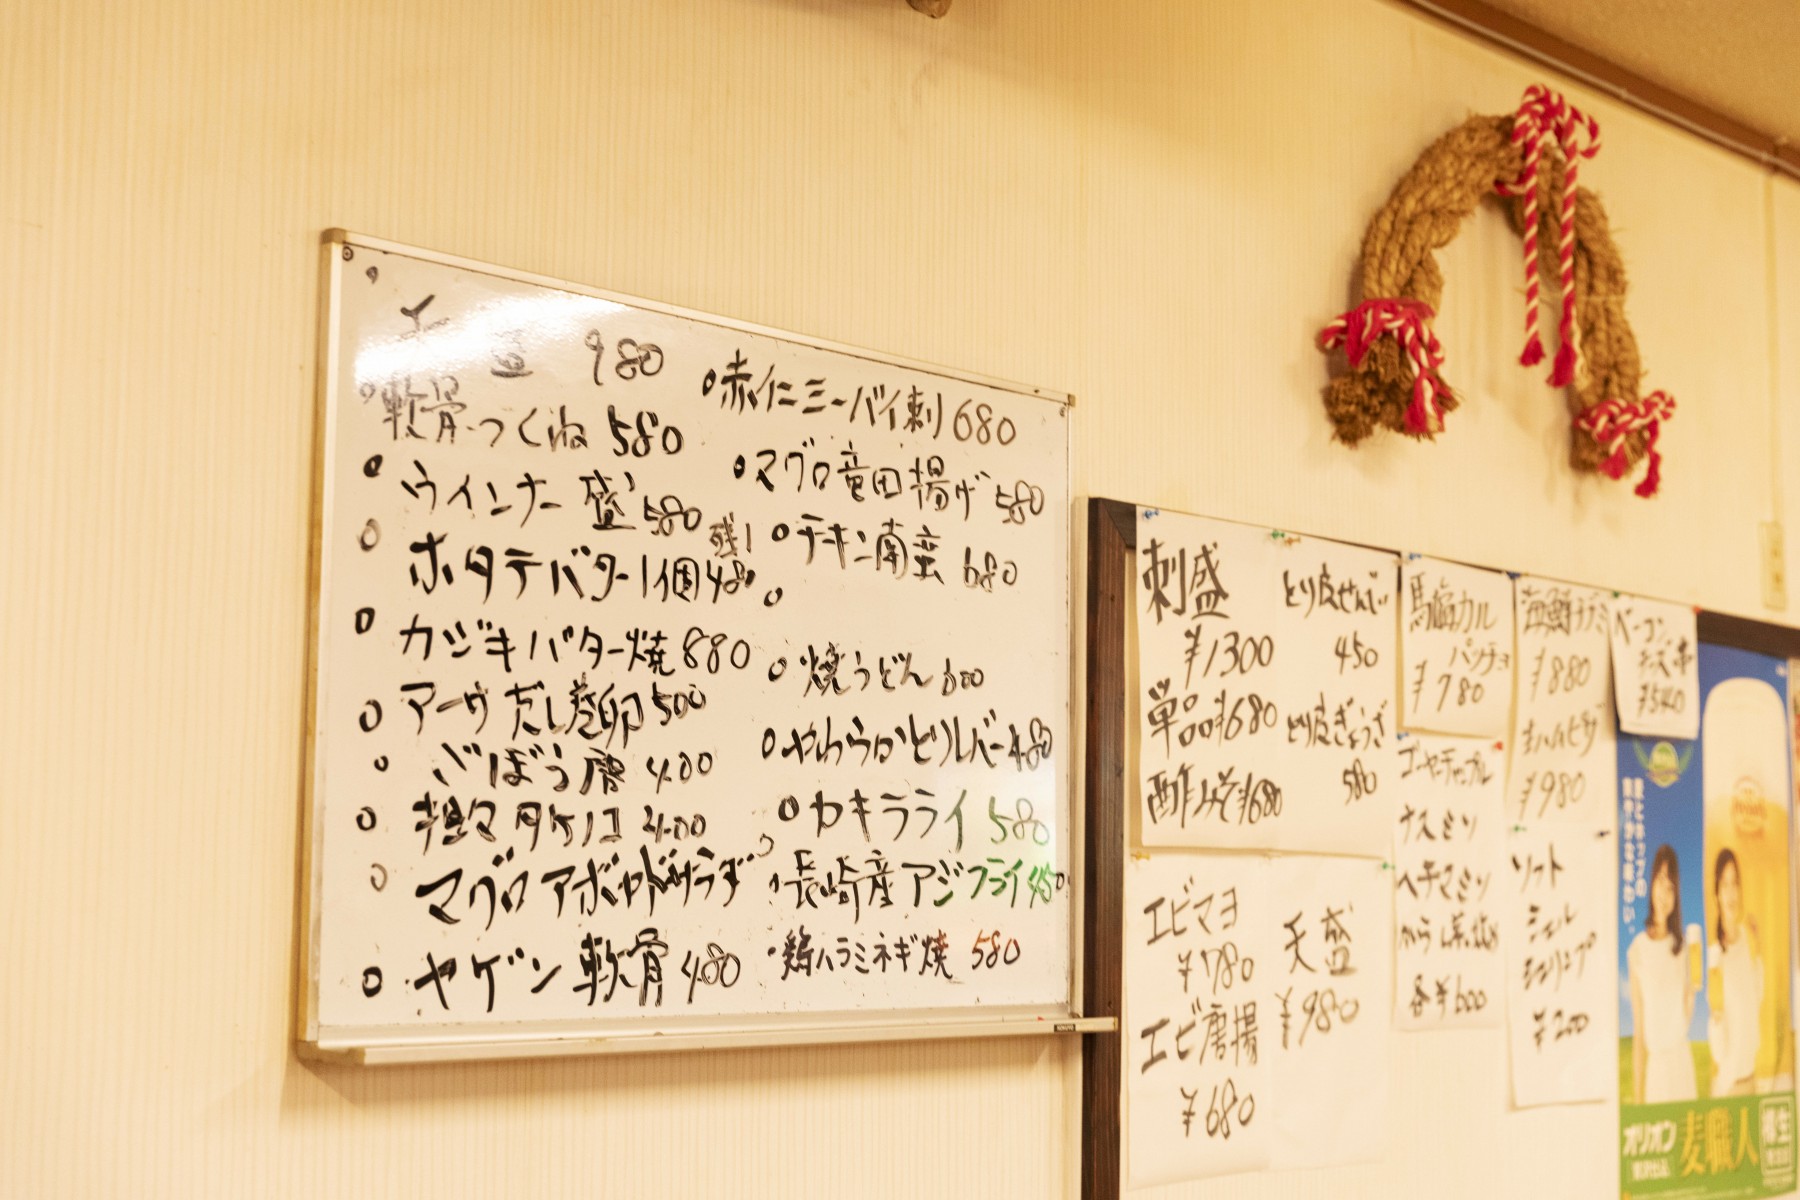 盛 980
軟骨つくね 580
ウインナー盛 580
残1
ホタテバター1個480
カジキバター焼 880
アーサだし巻卵 500
ごぼう唐 400
担々タケノコ 400
マグロアボカドサラダ
ヤゲン軟骨 480
赤仁ミーバイ刺 680
マグロ竜田揚げ 580
チキン南蛮 680
焼うどん 600
やわらかとりレバー 480
カキフライ 580
長崎産アジフライ 450
鶏ハラミネギ焼 580
刺盛
¥1300
単品¥680
酢みそ¥680
とり皮せんべい
450
とり皮ぎょうざ
580
エビマヨ
¥780
エビ唐揚
¥680
天盛
¥980
カル
パッチョ
¥780
ゴーヤーチャンプル
ナスミソ
ヘチマミソ
各¥600
¥880
生ハムピザ
¥980
ソフト
シェル
シュリンプ
¥200
ベーコン
チーズ串
¥540
オリオン
麦職人
樽生